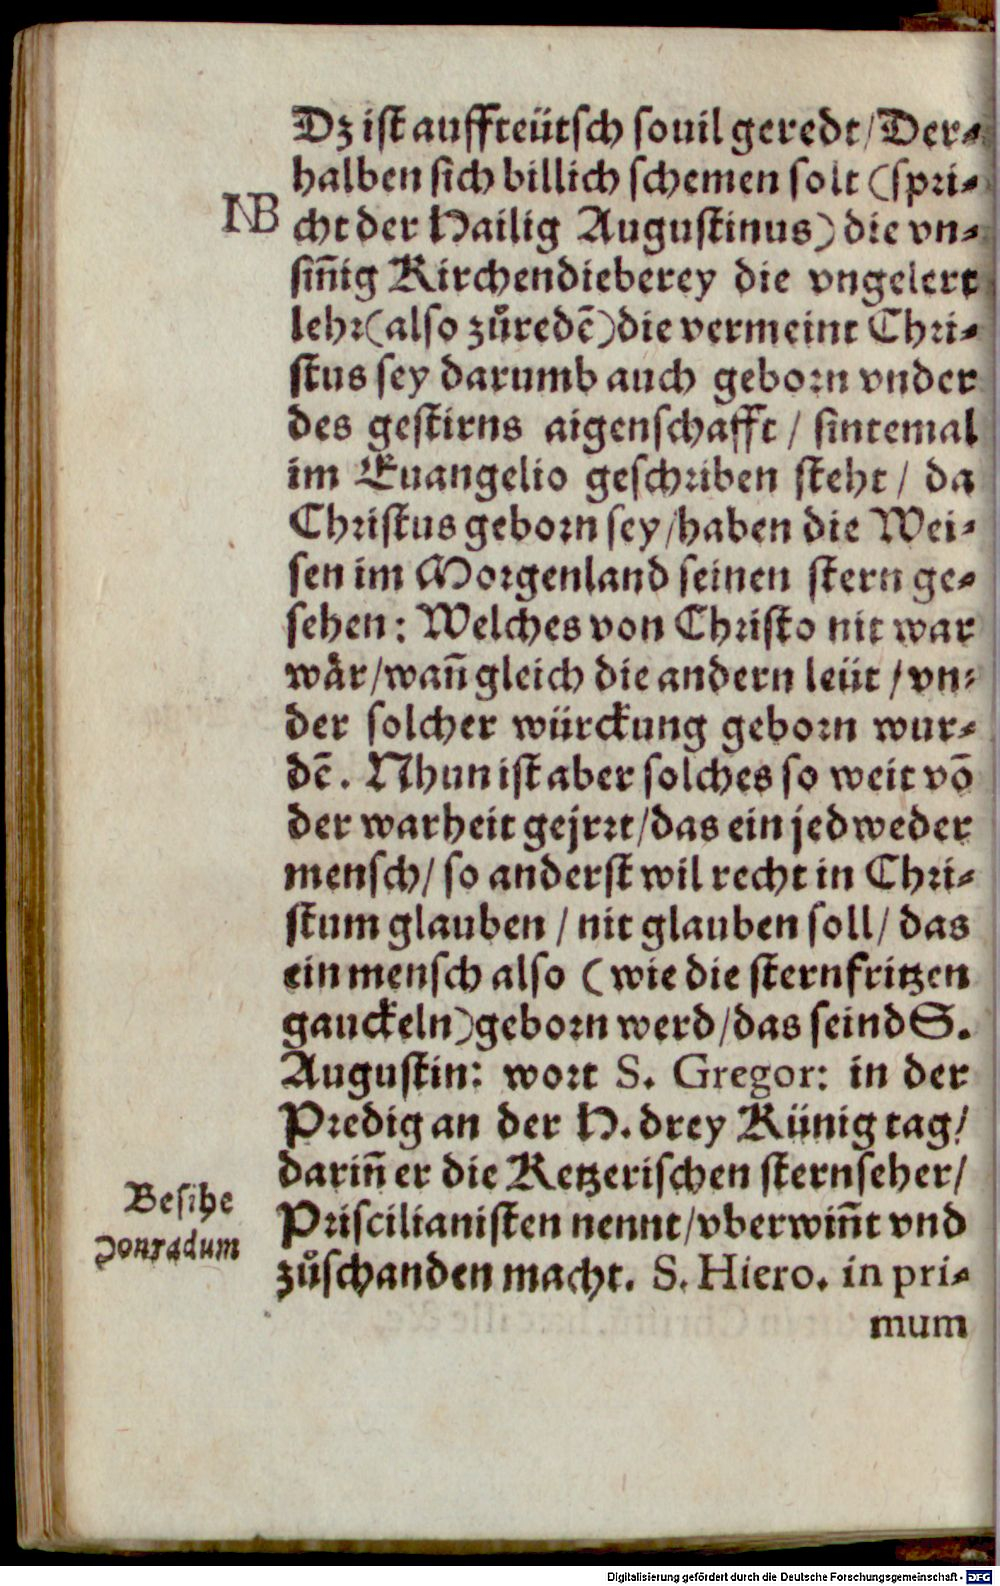 Dz ist auffteütsch souil geredt/Der⸗
halben sich billich schemen solt (spri⸗
NB
cht der Hailig Augustinus) die vn⸗
siñig Kirchendieberey die vngelert
lehr(also zůredẽ)die vermeint Chri⸗
stus sey darumb auch geborn vnder
des gestirns aigenschafft / sintemal
im Euangelio geschriben steht / da
Christus geborn sey/haben die Wei⸗
sen im Morgenland seinen stern ge⸗
sehen: Welches von Christo nit war
wår/wañ gleich die andern leüt / vn⸗
der solcher würckung geborn wur⸗
dẽ. Nhun ist aber solches so weit võ
der warheit gejrrt/das ein jedweder
mensch/ so anderst wil recht in Chri⸗
stum glauben / nit glauben soll/ das
ein mensch also ( wie die sternfritzen
gauckeln)geborn werd/das seind S.
Augustin: wort S. Gregor: in der
Predig an der H. drey Künig tag/
dariñ er die Ketzerischen sternseher/
Besihe
Priscilianisten nennt/vberwiñt vnd
ponradum
zůschanden macht. S. Hiero. in pri⸗
mum
Digitalisierung gefördert durch die Deutsche Forschungsgemeinschaft - DFG